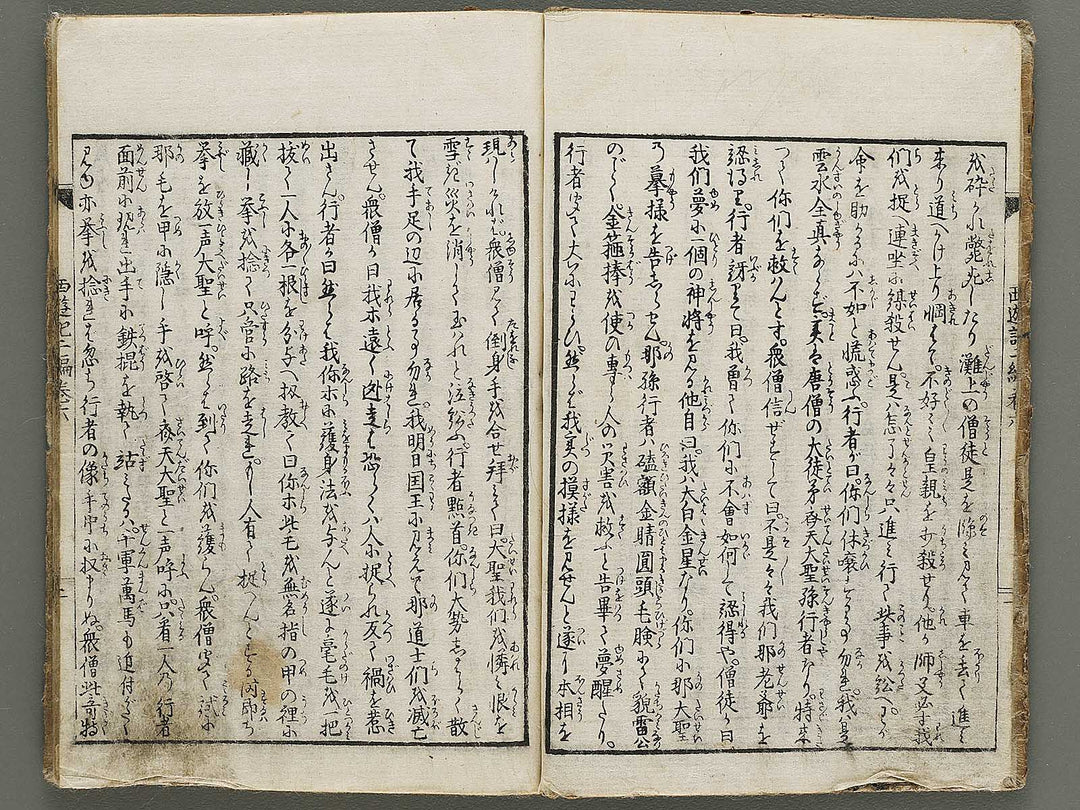 を砕かれ斃死したり灘上の僧徒是を隙し見て車を丟て進み
来り道へかけ上り惆はて不好々々皇親を打殺せり他が師又必ず我
們を捉へ連坐小縵殺せん是怎了々々只進み行て此事を訟へ
命を助かるにハ不如と慌惑ふ行者が曰你們休嚷する事勿れ我ハ是
雲水全真にあらず実は唐僧の大徒弟斉天大聖孫行者なり特来
つて你們を救ハんとす衆僧信ぜずして曰不是々々我們那老爺を
認得り行者訝りて曰我曽て你們に不會如何して認得や僧徒が曰
我們夢に一個の神将を見る他自曰我ハ太白金星なり你們に那大聖
の摹様を告しらせん那孫行者ハ磕額金睛圓頭毛臉にして貌雷公
のごとし金箍棒を使ひ専ら人の災害を救ふと告畢て夢醒たり
行者聞て大に然らバ我実の摸様を見せんと遂に本相を
現しければ衆僧見て倒身手を合せ拜して曰大聖我們を憐み恨を
雪ぎ災を消し玉はれと泣訟ふ行者點首你們大勢しばらく散
て我手足の辺に居る事勿れ我明日国王に見えて那道士們を滅亡
させん衆僧が曰我們遠く迯走らバ恐らくハ人に捉られ反て禍を惹
出さん行者が曰然らバ我你們に護身法を与へんと遂に毫毛を一把
抜て一人に各一根を分与へ扱教て曰你們此毛を無名指の甲の裡に
藏し拳を捻て只管に路を走れ若人有て捉へんとする時即ち
拳を放一声大聖と呼然らバ到て你們を護らん衆僧聞て試に
那毛を甲に隠し手を啓て斉天大聖と一声呼に只看一人の行者
面前に現れ出手に鉄棍を執て站立たるハ千軍萬馬も近付がたく
見ゆ亦拳を捻れバ忽ち行者の像手中に収まりぬ衆僧此奇特
西遊記二編巻六
西遊記二編巻六